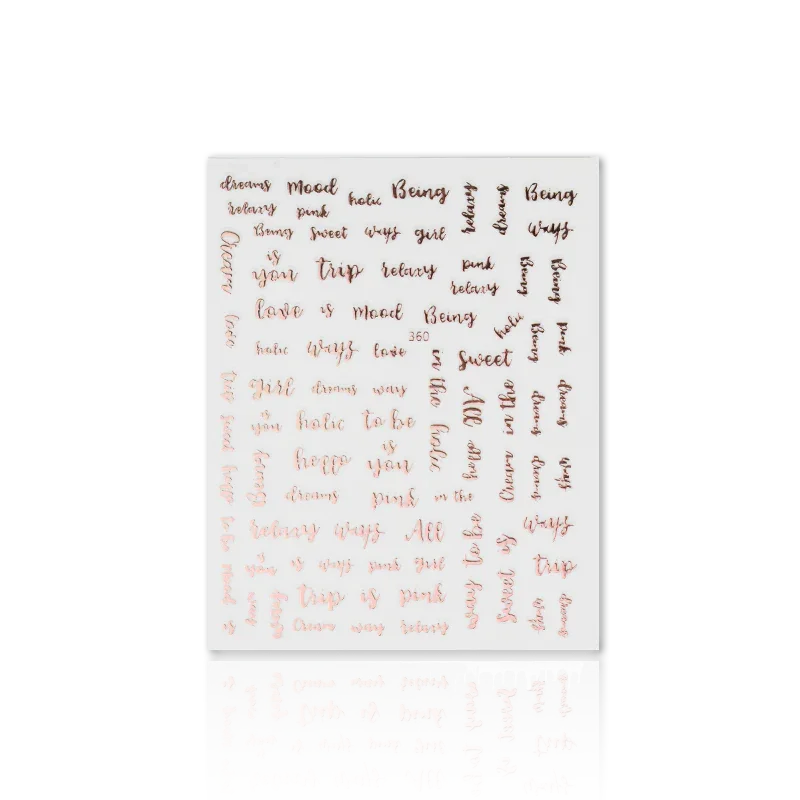 dreams Mood holic Being relaxy dreams Being
relaxy pink
Being sweet ways girl ways
Cream
is
you trip relaxy pink Being Being
relaxy
love is Mood Being holic
360
love holic ways love in the sweet Being pink
trip girl dreams ways All in the dreams dreams
is
you holic to be holic
is
you
Cream dreams ways
dreams pink in the
relaxy ways All to be ways
is
you is ways pink girl sweet is trip
ways trip is pink ways ways dreams
is Cream ways relaxy